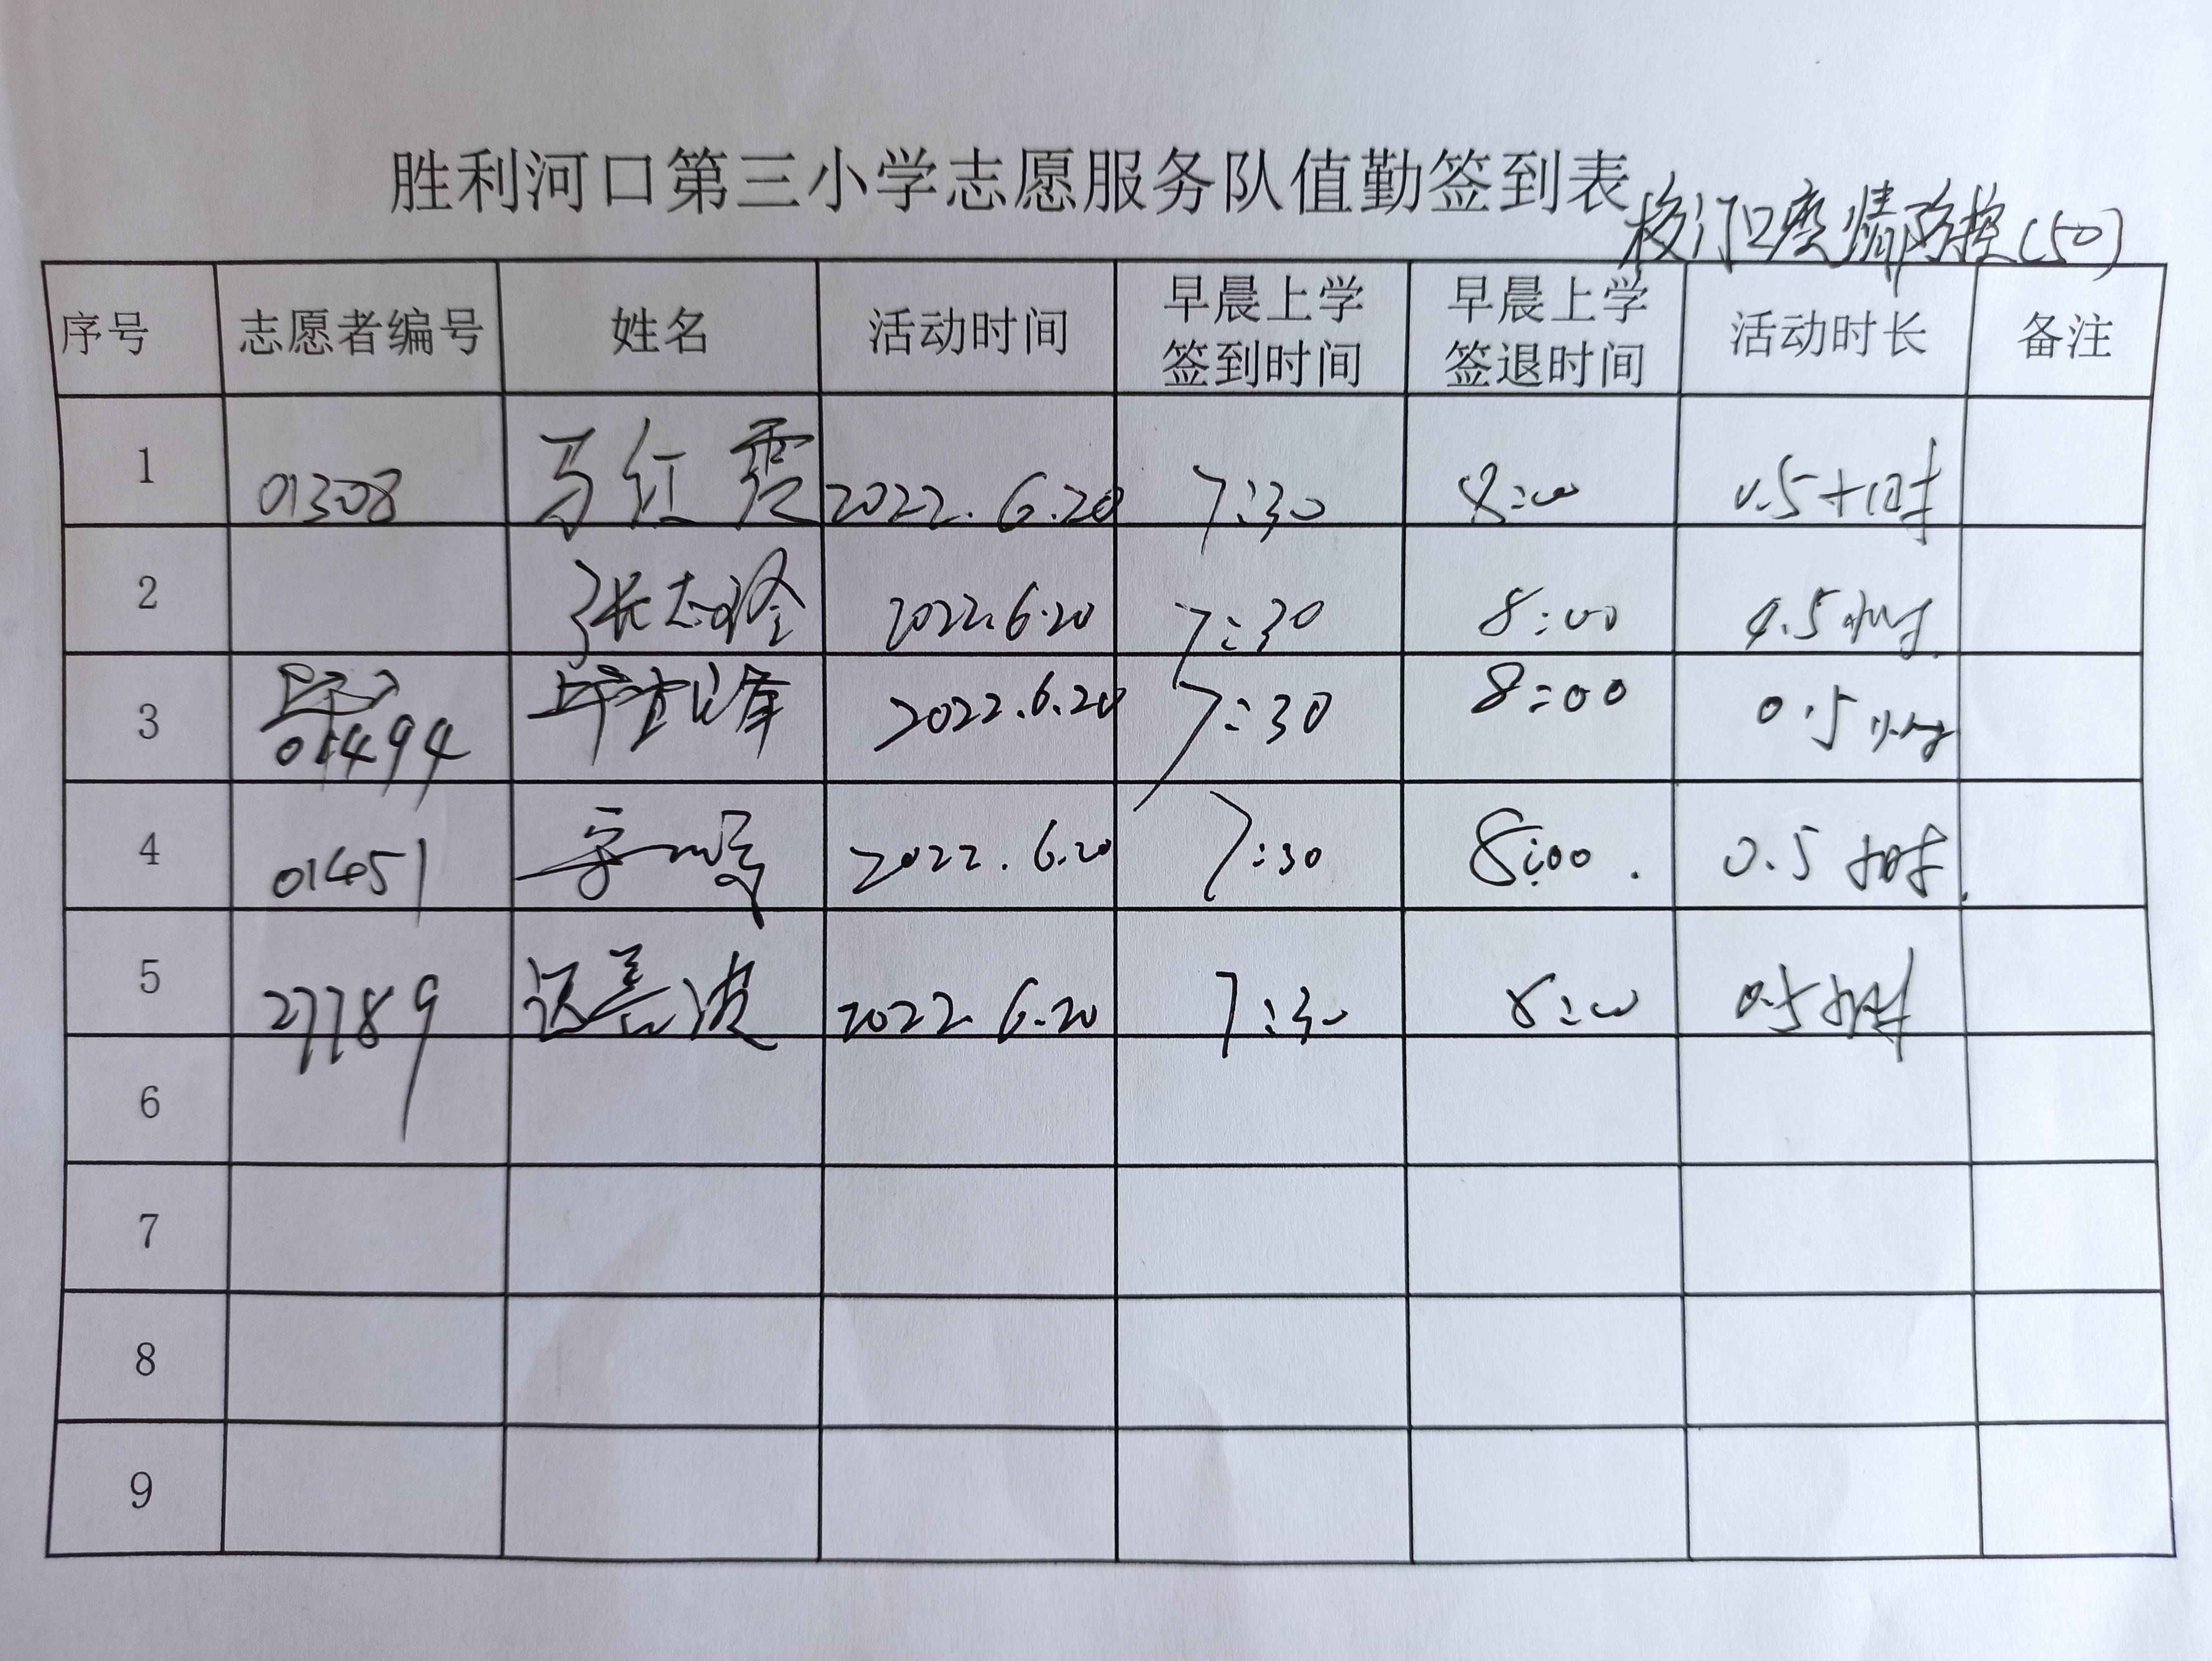 胜利河口第三小学志愿服务队值勤签到表
校门口疫情防控(50)
序号 志愿者编号 姓名 活动时间 早晨上学签到时间 早晨上学签退时间 活动时长 备注
1 01308 马红霞 2022.6.20 7:30 8:00 0.5小时
2 张志 2022.6.20 7:30 8:00 0.5小时
3 01494 2022.6.20 7:30 8:00 0.5小时
4 01451 2022.6.20 7:30 8:00 0.5小时
5 27789 2022.6.20 7:30 8:00 0.5小时
6
7
8
9